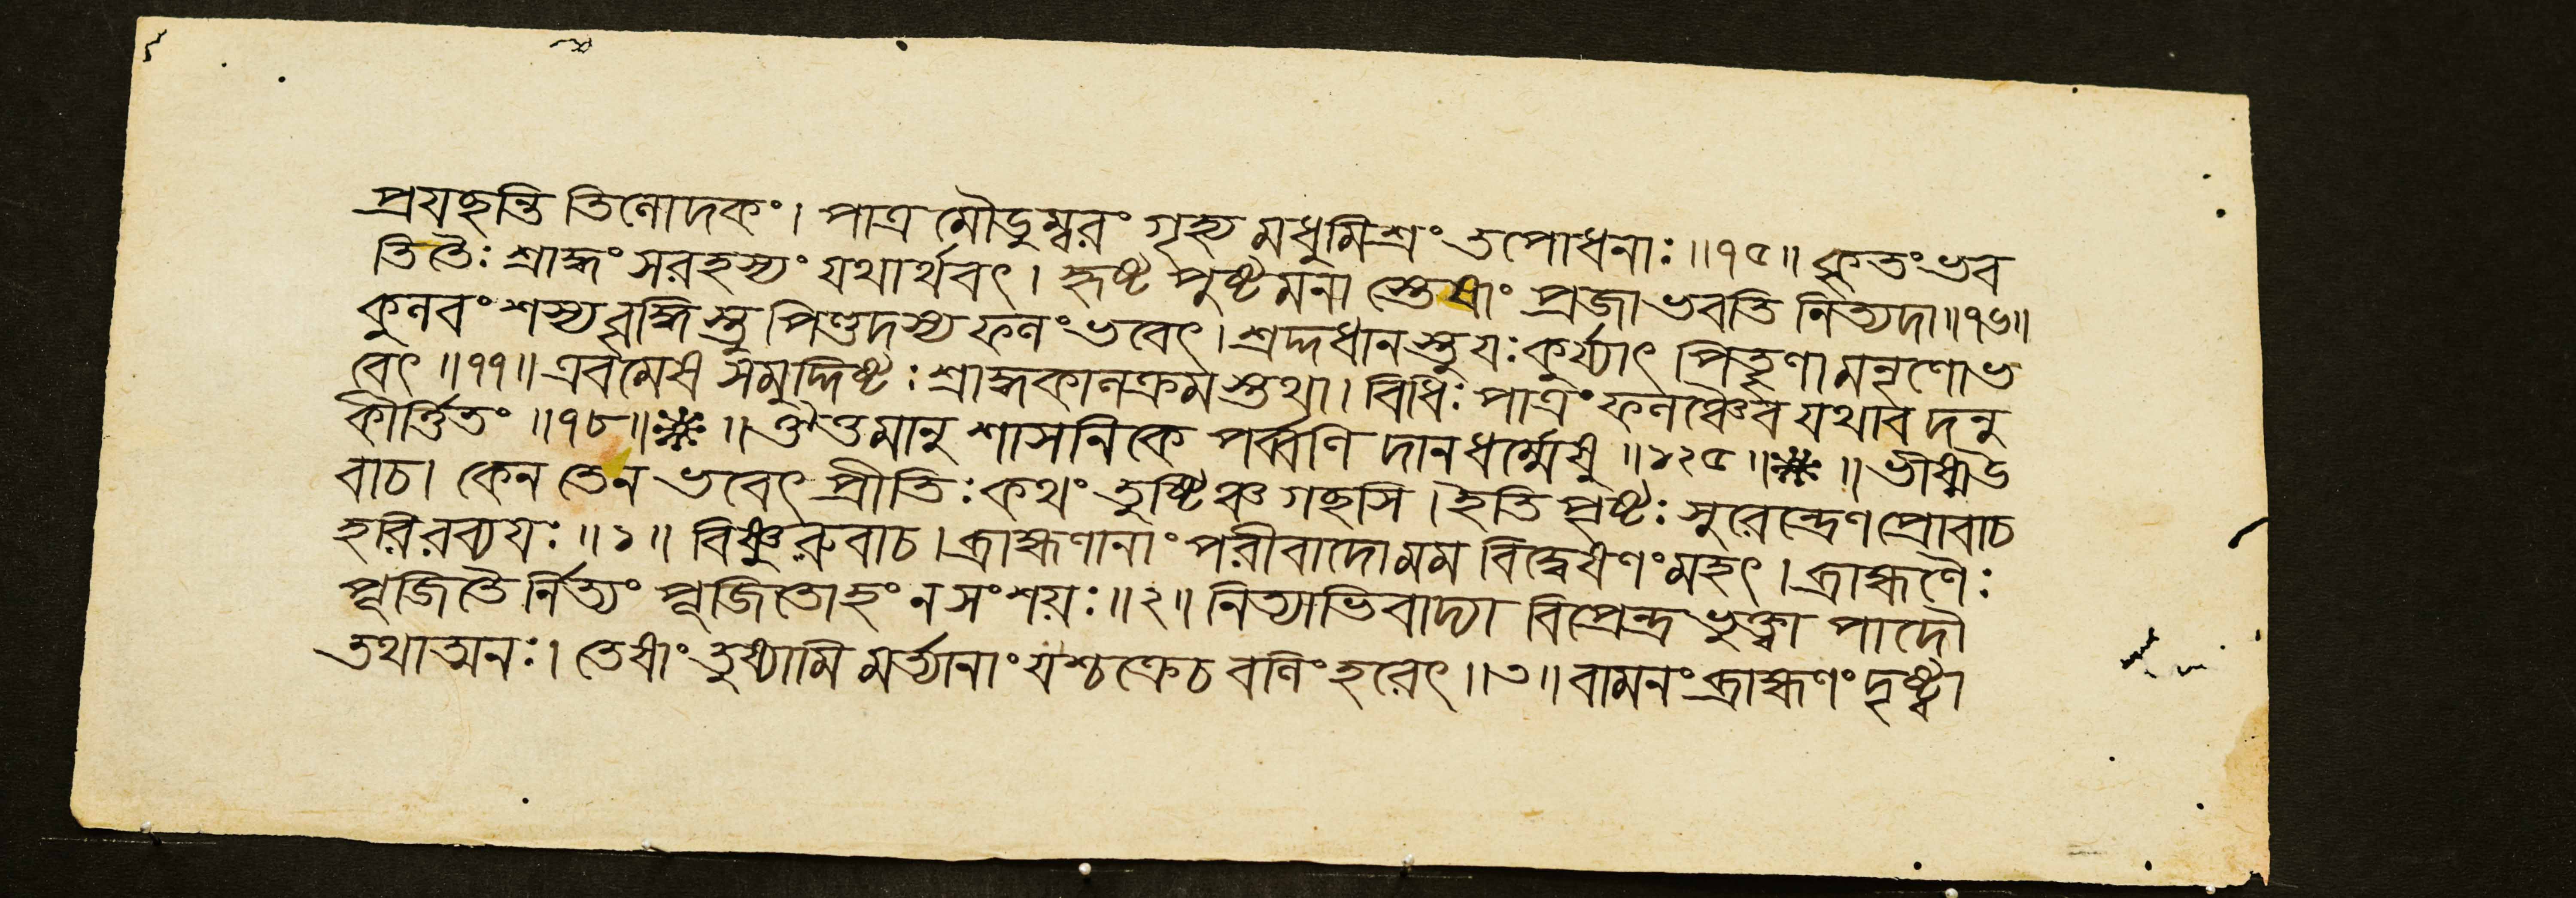 প্রযচ্ছন্তি তিলোদকং। পাত্র মৌডুম্বরং গৃহ্য মধুমিশ্রং তপোধনাঃ॥৭৫॥ কৃতং ভব
তি তৈঃ শ্রাদ্ধং সরহস্যং যথার্থবৎ। হৃষ্ট পুষ্টমনা স্তেষাং প্রজা ভবতি নিত্যদা॥৭৬॥
কুলবং শস্য বৃদ্ধি স্তু পিণ্ডদস্য ফলং ভবেৎ। শ্রদ্দধান স্তু যঃ কুর্য্যাৎ পিতৄণা মনৃণোভ
বেৎ॥৭৭॥ এবমেষ সমুদ্দিষ্টঃ শ্রাদ্ধকালক্রম স্তথা। বিধিঃ পাত্রং ফলঞ্চৈব যথাব দনু
কীর্ত্তিতং॥৭৮॥❋॥ ঔত্তমানু শাসনিকে পর্ব্বণি দানধর্ম্মেষু॥১২৫॥❋॥ ভীষ্মউ
বাচ। কেন তেন ভবেৎ প্রীতিঃ কথং তুষ্টিঞ্চ গচ্ছসি। ইতি পৃষ্টঃ সুরেন্দ্রেণ প্রোবাচ
হরিরব্যয়ঃ॥১॥ বিষ্ণুরুবাচ। ব্রাহ্মণানাং পরীবাদো মম বিদ্বেষণং মহৎ। ব্রাহ্মণৈঃ
পূজিতৈ র্নিত্যং পূজিতোহং ন সংশয়ঃ॥২॥ নিত্যাভিবাদ্যা বিপ্রেন্দ্র ভুক্ত্বা পাদৌ
তথাত্মনঃ। তেষাং তুষ্যামি মর্ত্যানাং যশ্চক্রেচ বলিং হরেৎ॥৩॥ বামনং ব্রাহ্মণং দৃষ্ট্বা